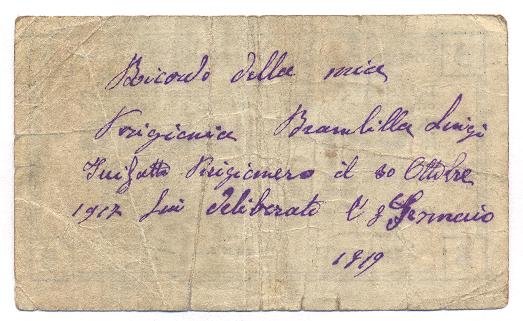 Ricordo della mia
Prigionia Brambilla Luigi
Fui fatto Prigioniero il 30 Ottobre
1917 fui deliberato l' 8 Gennaio
1919